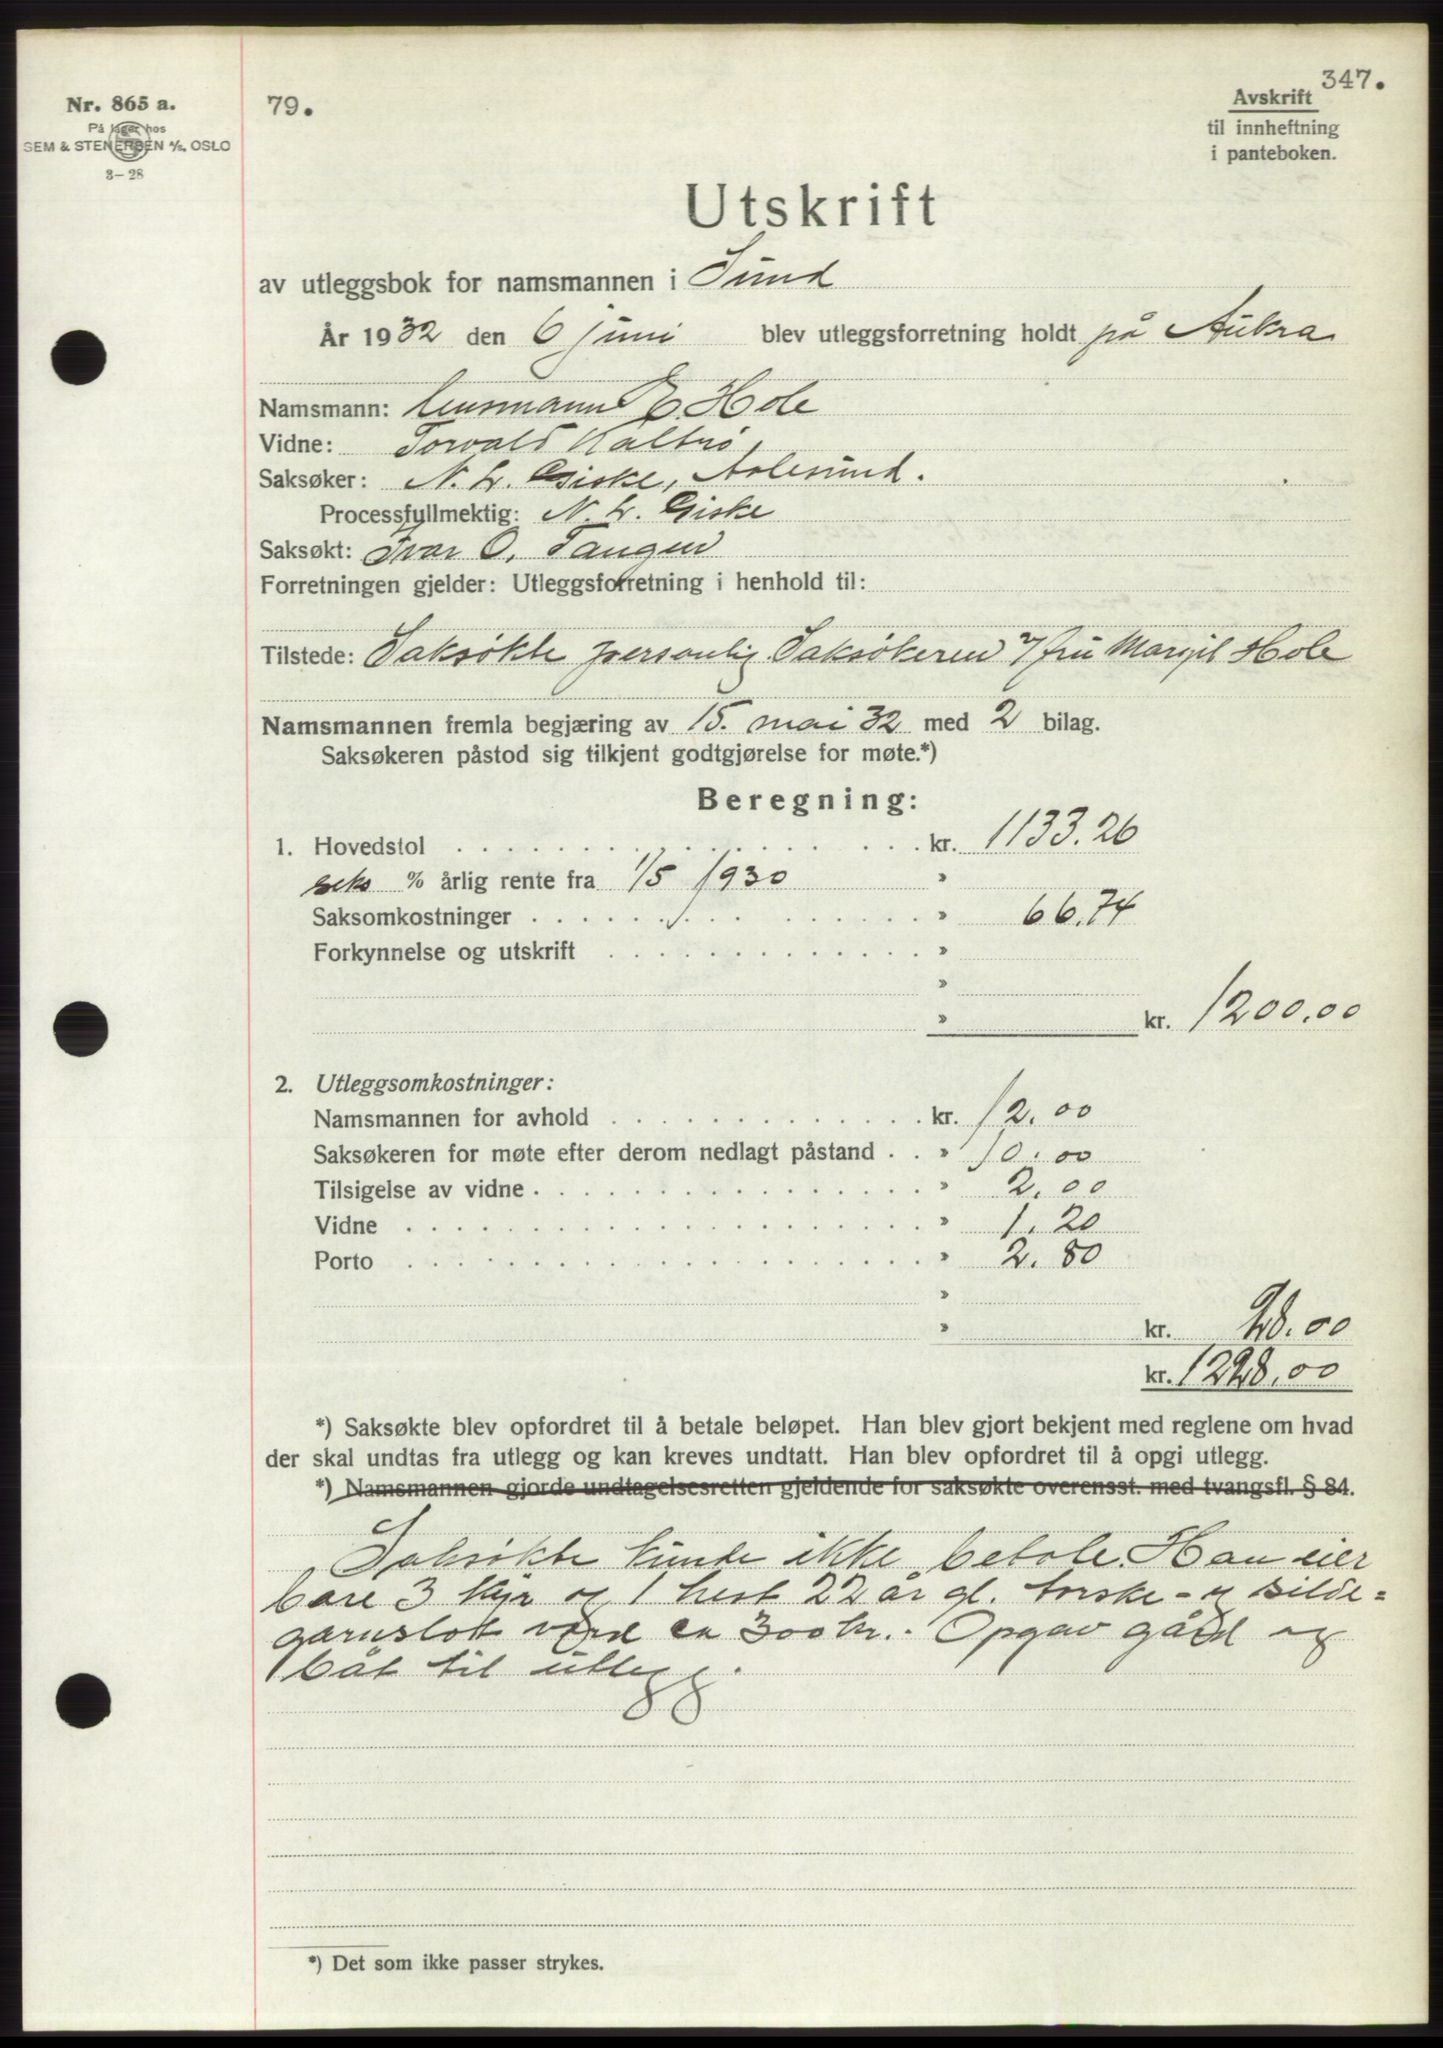 347.
Nr. 865 a.
På lager hos
SEM & STENERSEN A/S, OSLO
3–28
79.
Avskrift
til innheftning
i panteboken.
Utskrift
av utleggsbok for namsmannen i Sund
År 1932 den 6 juni blev utleggsforretning holdt på Aukra
Namsmann: lensmann E. Hole
Vidne: Torvald Kalbø
Saksøker: N. L. Giske, Aalesund.
Processfullmektig: N. L. Giske
Saksøkt: Ivar O. Tangen
Forretningen gjelder: Utleggsforretning i henhold til:
Tilstede: Saksøkte personlig Saksøkeren v/fru Margit Hole
Namsmannen fremla begjæring av 15. mai 32 med 2 bilag.
Saksøkeren påstod sig tilkjent godtgjørelse for møte.*)
Beregning:
1. Hovedstol . . . . . kr. 1133.26
seks % årlig rente fra 1/5 1930 »
Saksomkostninger . . . . . » 66,74
Forkynnelse og utskrift . . . . . »
»
» kr. 1200.00
2. Utleggsomkostninger:
Namsmannen for avhold . . . . . kr. 12.00
Saksøkeren for møte efter derom nedlagt påstand . . » 10.00
Tilsigelse av vidne . . . . . » 2.00
Vidne . . . . . » 1.20
Porto . . . . . » 2.80
»
» kr. 28.00
kr. 1228.00
*) Saksøkte blev opfordret til å betale beløpet. Han blev gjort bekjent med reglene om hvad
der skal undtas fra utlegg og kan kreves undtatt. Han blev opfordret til å opgi utlegg.
*) Namsmannen gjorde undtagelsesretten gjeldende for saksøkte overensst. med tvangsfl. § 84.
Saksøkte kunde ikke betale. Han eier
bare 3 kyr og 1 hest 22 år gl. torske- og silde=
garnslott verd ca 300 kr. - Opgav gård og
båt til utlegg.
*) Det som ikke passer strykes.